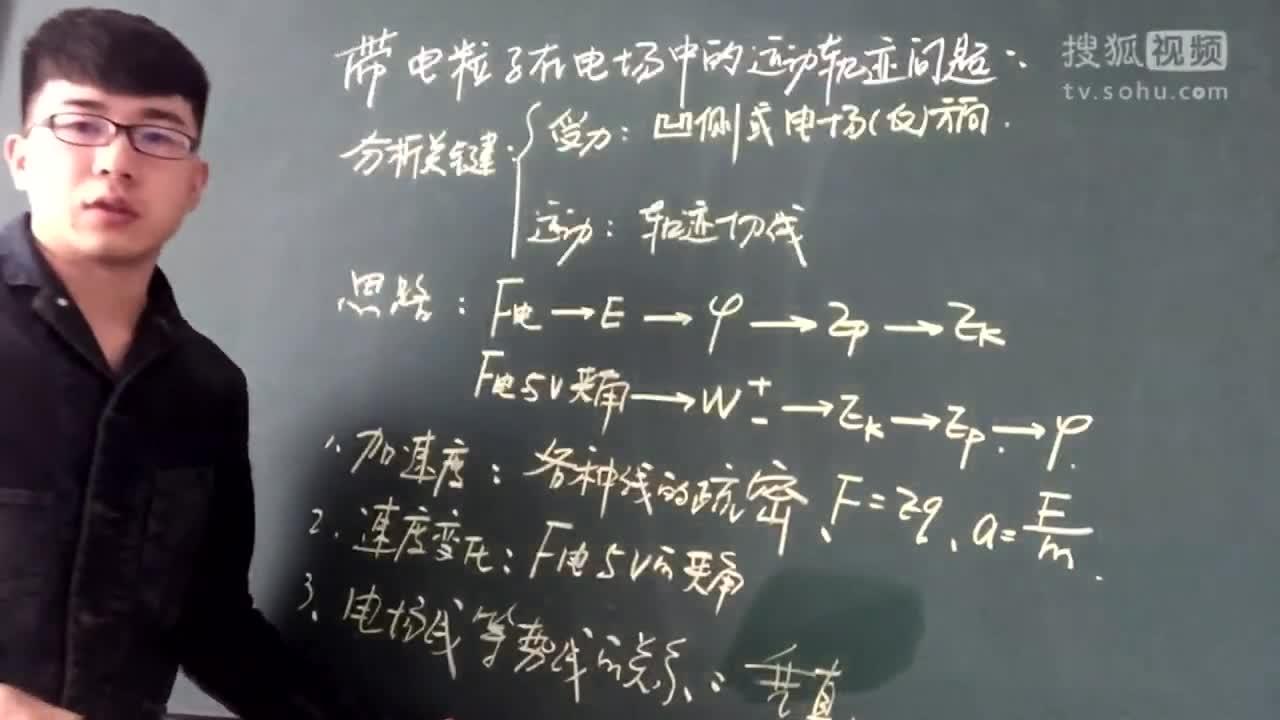 带电粒子在电场中的运动轨迹问题:
搜狐视频
tv.sohu.com
分析关键:
受力: 凹侧或电场(反)方向.
运动: 轨迹切线
思路: F电→E→φ→Ep→Ek
F电与V夹角→W±→Ek→Ep→φ.
1.加速度: 各种线的疏密、F=Eq、a=F/m.
2.速度变化: F电与V的夹角
3、电场线等势线的关系: 垂直.